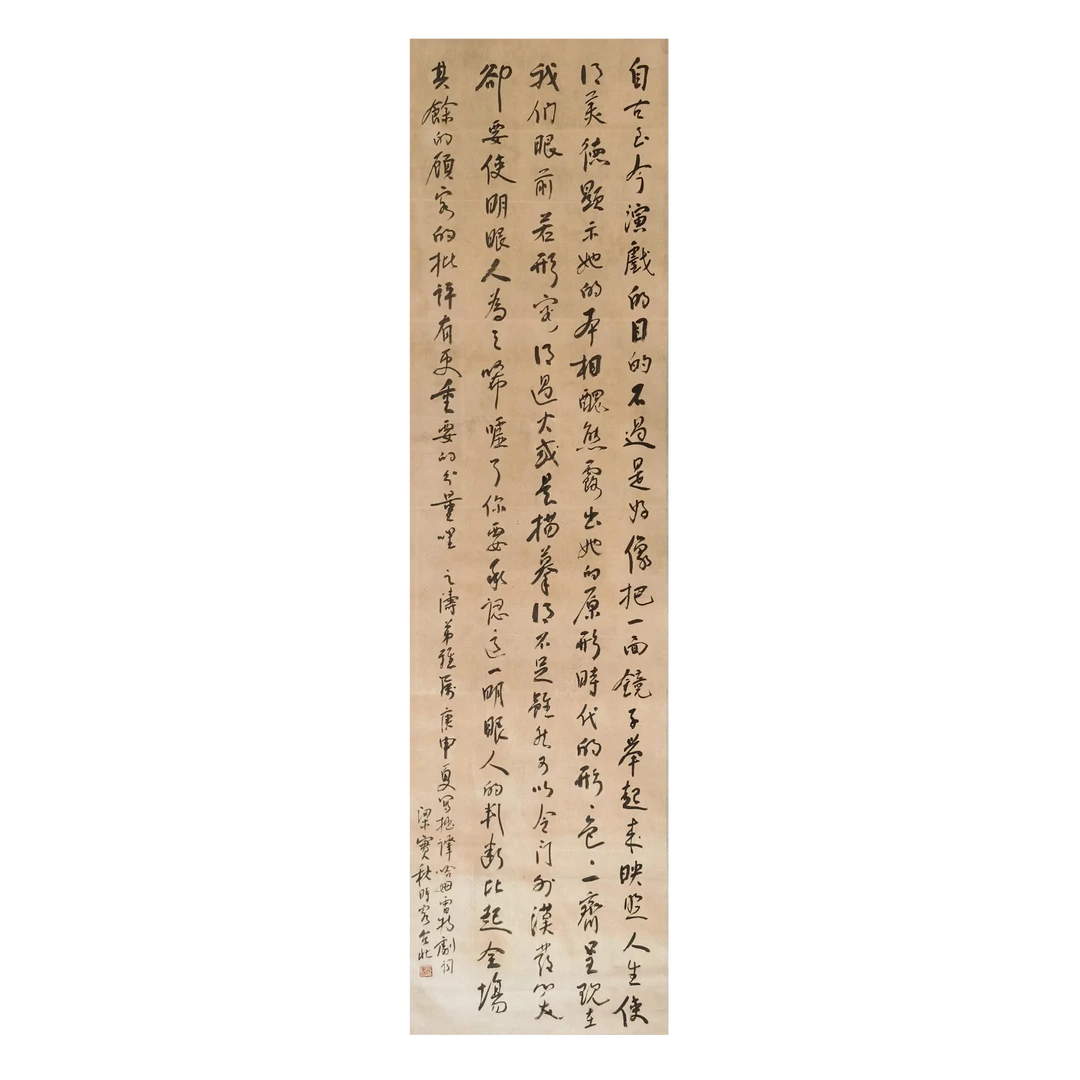 自古至今演戲的目的不過是好像把一面鏡子舉起來映照人生使
得美德顯示她的本相醜態露出她的原形時代的形形色色一齊呈現在
我們眼前若形容得過火或是描摹得不足雖然可以令門外漢發笑
卻要使明眼人為之唏噓了你要承認這一明眼人的判斷比起全場
其餘的顧客的批評有更重要的分量哩
之濤弟雅屬庚申夏寫拙譯哈姆雷特劇詞
梁實秋時客台北